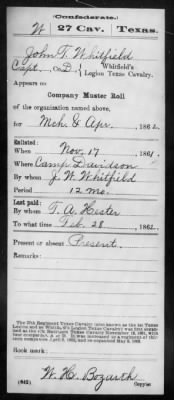 (Confederate.)
W 27 Cav. Texas.
John T. Whitfield
Capt., Co. D, Whitfield's Legion Texas Cavalry.
Appears on
Company Muster Roll
of the organization named above,
for Mch & Apr, 1862.
Enlisted:
When Nov. 17, 1861.
Where Camp Davidson
By whom J. W. Whitfield
Period 12 mo.
Last paid:
By whom T. A. Hester
To what time Feb. 28, 1862.
Present or absent Present
Remarks:
Book mark:
(642) W. H. Bozarth
Copyist.